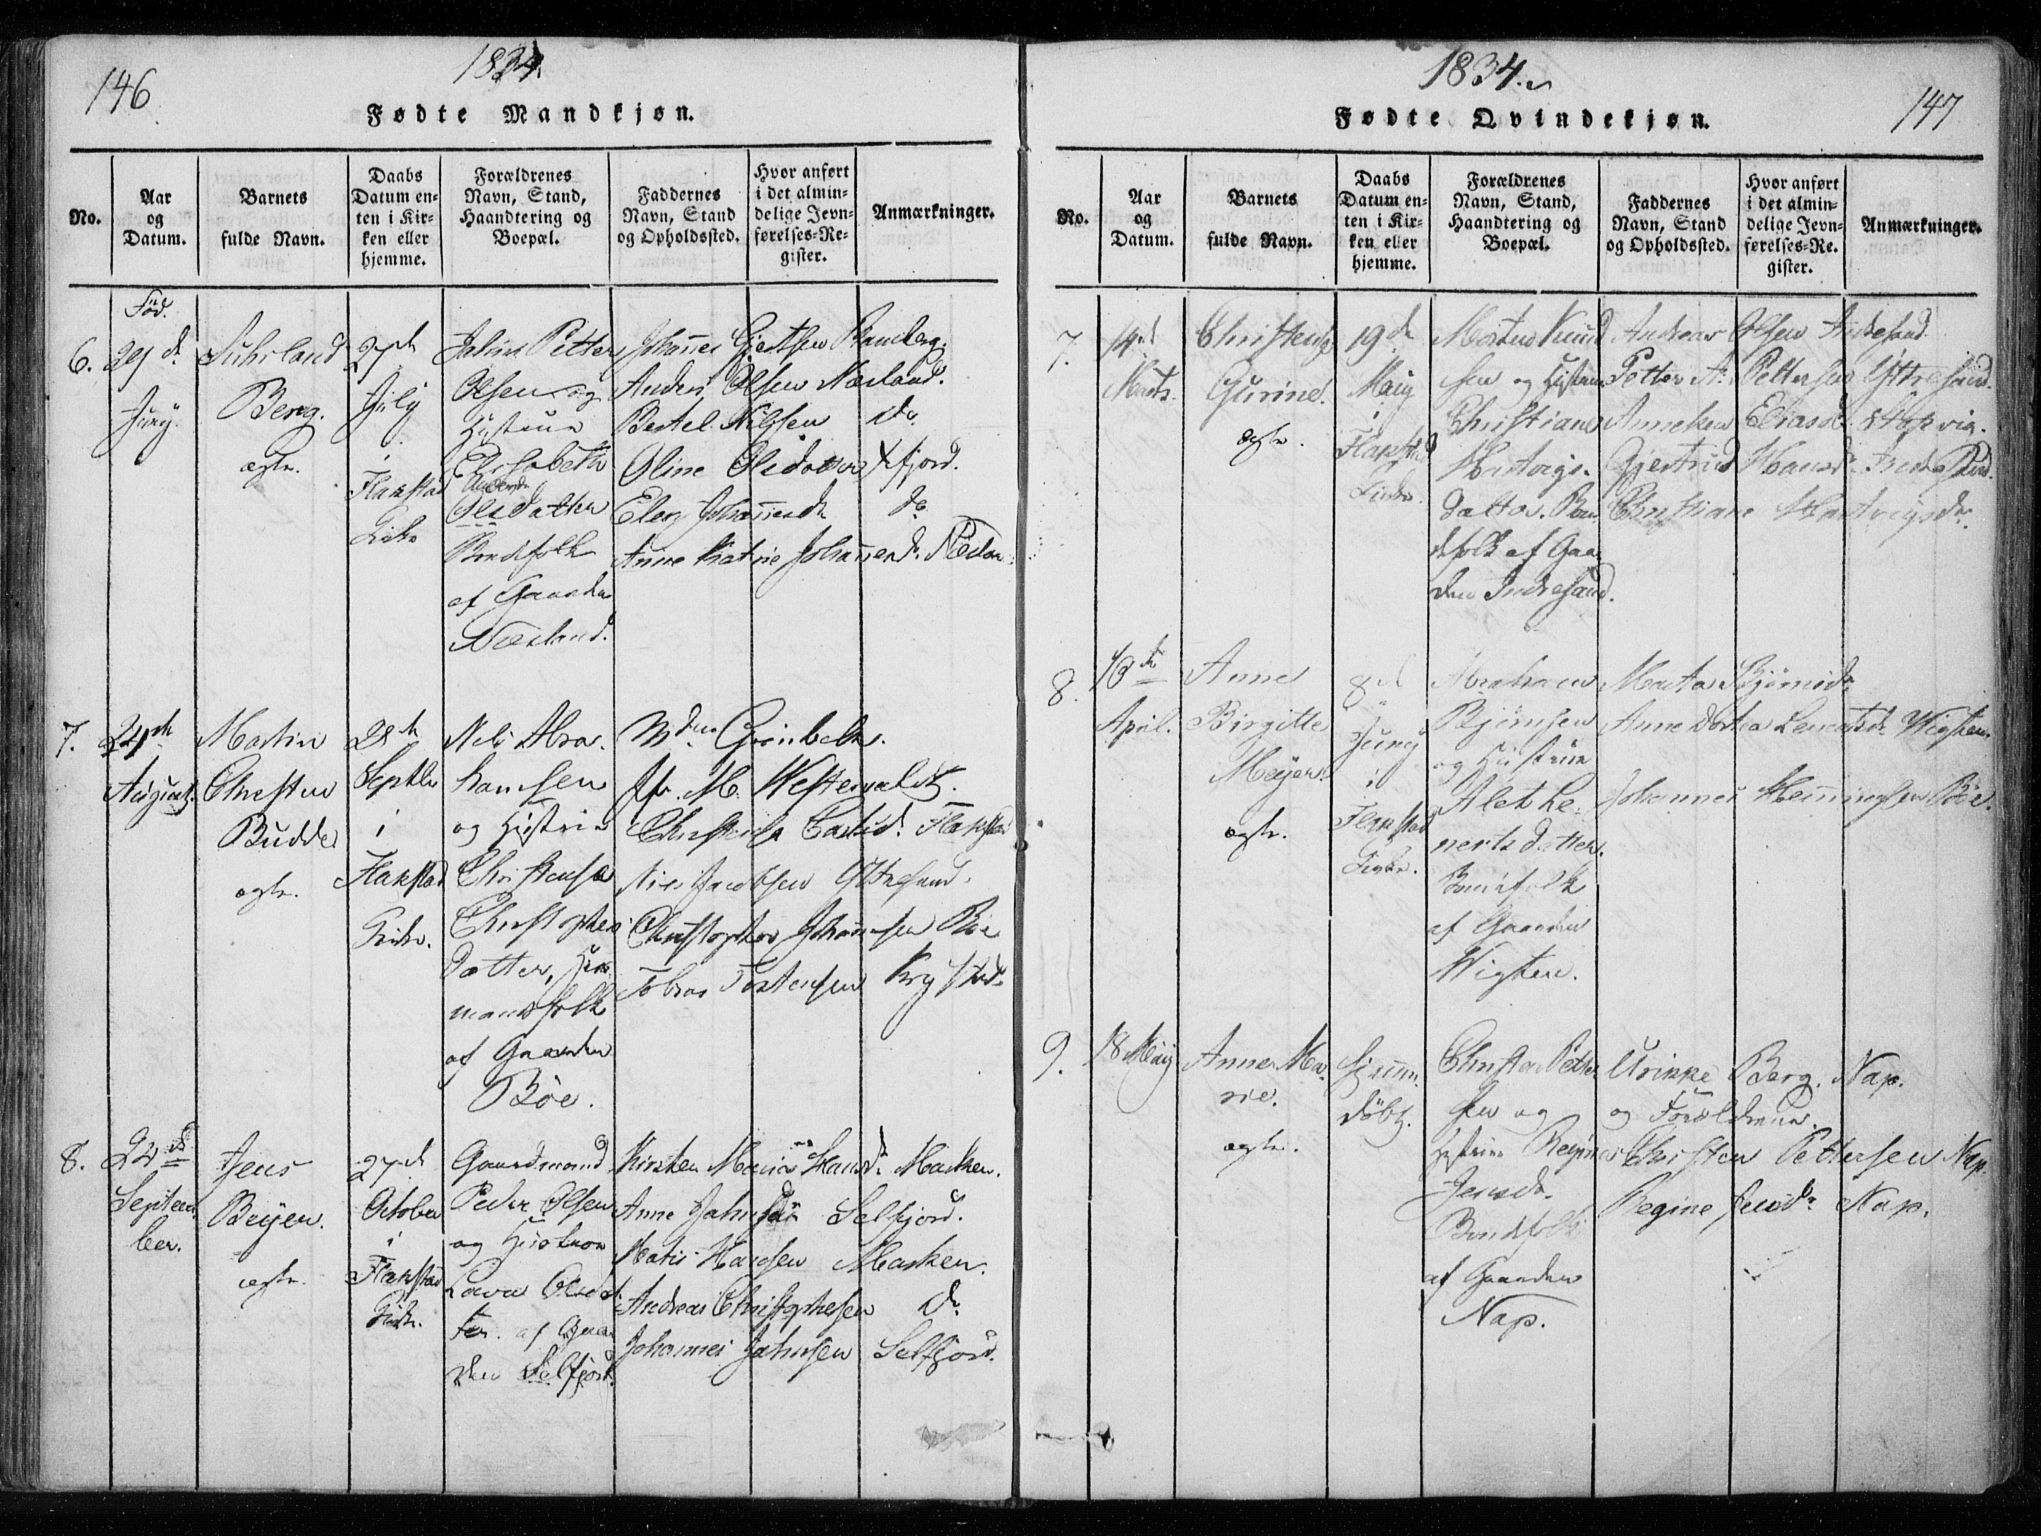 146
1834.
Fødte Mandkjøn.
No.
Aar
og
Datum.
Barnets
fulde Navn.
Daabs
Datum en-
ten i Kir-
ken eller
hjemme.
Forældrenes
Navn, Stand,
Haandtering og
Boepæl.
Faddernes
Navn, Stand
og Opholdssted.
Hvor anført
i det almin-
delige Jevn-
førelses-Re-
gister.
Anmærkninger.
6.
Fød.
29 d.
Juny.
Suhrland
Berg.
ægte.
27de
July
i
Flakstad
Kirke
Johns Petter
Olsen og
Hustrue
Elisabeth
Olsdatter
Bondefolk
af Gaarden
Næsland.
Johannes Gjertsen Ramberg.
Anders Olsen Næsland.
Bertel Nilsen do.
Oline Olsdatter
Elen Johannesdr. do.
Anne Katrine Johannesdr.
7.
24de
August.
Martin
Christen
Budde
ægte.
28de
Septbr
i
Flakstad
Kirke.
Nels Abra-
hamsen
og Hustrue
Christense
Christophers
Datter,
mandsfolk
af Gaarden
Böe.
Mdme Grönbeck.
Jfr. M. Westervaldt.
Flakstad
Nies Jacobsen Yttresand.
Christopher Johannesen Böe
Tobias Torstensen Krystad.
8.
24de
Septem-
ber.
Jens
Beyer.
ægte.
27de
October
i
Flakstad
Kirke.
Gaardmand
Peder Olsen
og Hustrue
Lava Olsdat-
ter. af Gaar-
den Selfjord.
Kirsten Maria Hansdr. Marken.
Anne Jahnsdr Selfjord.
Matis Hansen Marken.
Andreas Christophersen do.
Johannes Jahnsen Selfjord.
1834.
147
Fødte Qvindekjøn.
No.
Aar
og
Datum.
Barnets
fulde Navn.
Daabs
Datum en-
ten i Kir-
ken eller
hjemme.
Forældrenes
Navn, Stand,
Haandtering og
Boepæl.
Faddernes
Navn, Stand
og Opholdssted.
Hvor anført
i det almin-
delige Jevn-
førelses-Re-
gister.
Anmærkninger.
7.
14de
Marts.
Christense
Gurine.
ægte.
19de
Maiy
i
Flakstad
Kirke.
Morten Knud-
sen og Hustrue
Christiane
Hartvigs-
datter. Bon-
defolk af Gaar-
den Indresand.
Andreas Olsen Indresand.
Petter A. Pettersen Yttresand.
Anneken Eliasdr.
Gjertrud Hansdr. Indresand.
Christiane Hartvigsdr.
8.
13de
April.
Anne
Birgitte
Meyer.
ægte.
8de
Juny
i
Flakstad
Kirke.
Abraham
Björnsen
og Hustrue
Alet Le-
nertsdatter.
Bondefolk
af Gaarden
Wigten.
Marta Björnsdr.
Anne Dortea Lenertsdr. Wigten.
Johannes Henningsen Böe.
9.
18 Maiy
Anne Ma-
rie.
ægte.
Hjemme-
döbt.
Christen Petter-
sen og
Hustrue Regine
Jensdr.
Bondefolk
af Gaarden
Nap.
Ulrikke Berg. Nap.
og Forældrene.
Christen Pettersen Nap.
Regine Jensdr. Nap.